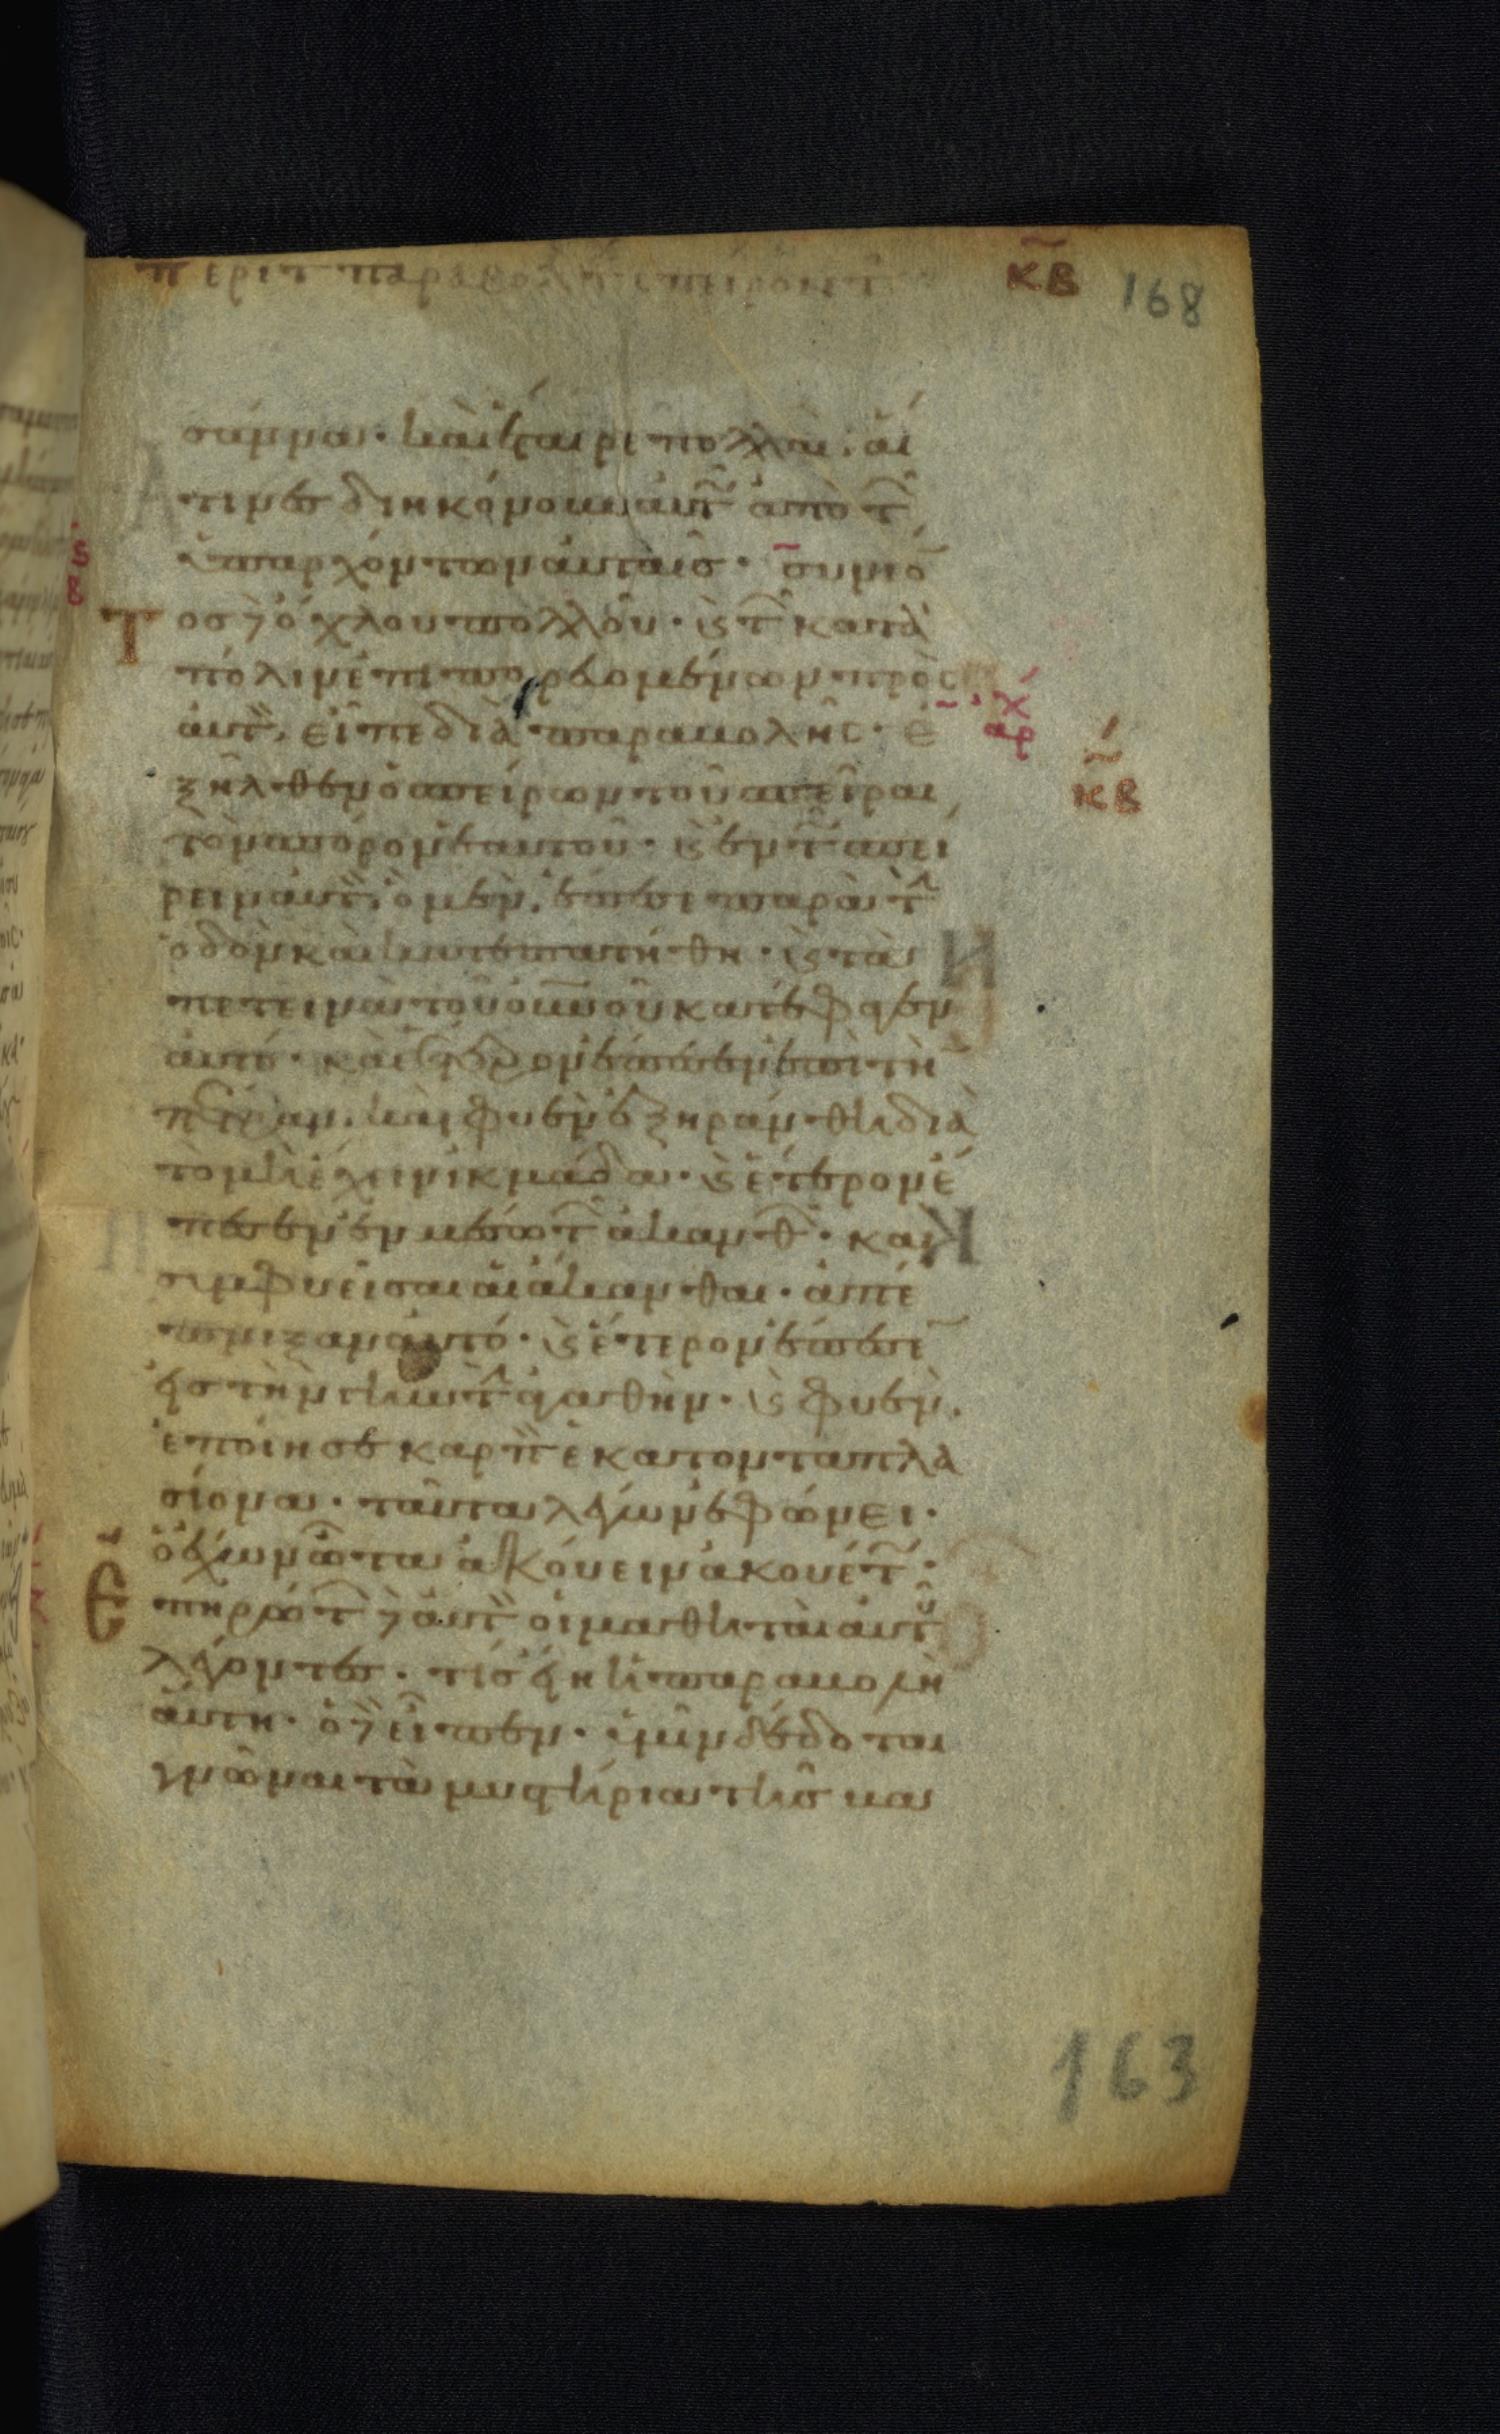 περι τ παραβολης σπειροντ
κβ
168
σάννα· καὶ ἕταιρε πολλαὶ· αἵ
τινες διηκόνουν αὐτ ἀπὸ τ
ὑπαρχόντων αὐταῖς· συνιό
Τ
οσ δ ὄχλου πολλοῦ· ϗ τ κατὰ
πόλιν ἐπιπορευομένων πρὸς
αὐτ, εἶπε διὰ παραβολῆς· ἐ
αρχ
κβ
ξῆλθεν ὁ σπείρων τοῦ σπεῖραι
τὸν σπόρον ἑαυτοῦ· ϗ ἐν τ σπεί
ρειν αὐτ, ὃ μὲν, ἔπεσε παρὰ τ
ὁδὸν καὶ κατεπατήθη· ϗ τὰ
πετεινὰ τοῦ οὐνοῦ κατέφαγεν
αὐτό· καὶ ἕτερον ἔπεσεν ἐπὶ τὴ
πέτραν, καὶ φυὲν ἐξηράνθη διὰ
τὸ μὴ ἔχειν ἰκμάδα· ϗ ἕτερον ἔ
πεσεν ἐν μέσω τ ἀκανθ· καὶ
συμφυεῖσαι αἱ ἄκανθαι· ἀπέ
πνιξαν αὐτό· ϗ ἕτερον ἔπεσε
εἰς τὴν γῆν τ ἀγαθὴν· ϗ φυὲν,
ἐποίησε καρπ ἑκατονταπλα
σίονα· ταῦτα λέγων ἐφώνει·
ὁ ἔχων ὦτα ἀκούειν ἀκουέτ·
Ε
πηρώτ δ αὐτ οἱ μαθηταὶ αὐτοῦ
λέγοντες· τίς εἴη ἡ παραβολὴ
αὕτη· ὁ δ εἶπεν· ὑμῖν δέδοται
γνῶναι τὰ μυστήρια τῆς βα
163